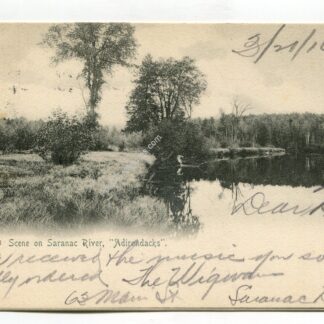 3/21/10
Scene on Saranac River, "Adirondacks".
Dear
received the music you so
ordered The Wigwam
63 Main St Saranac